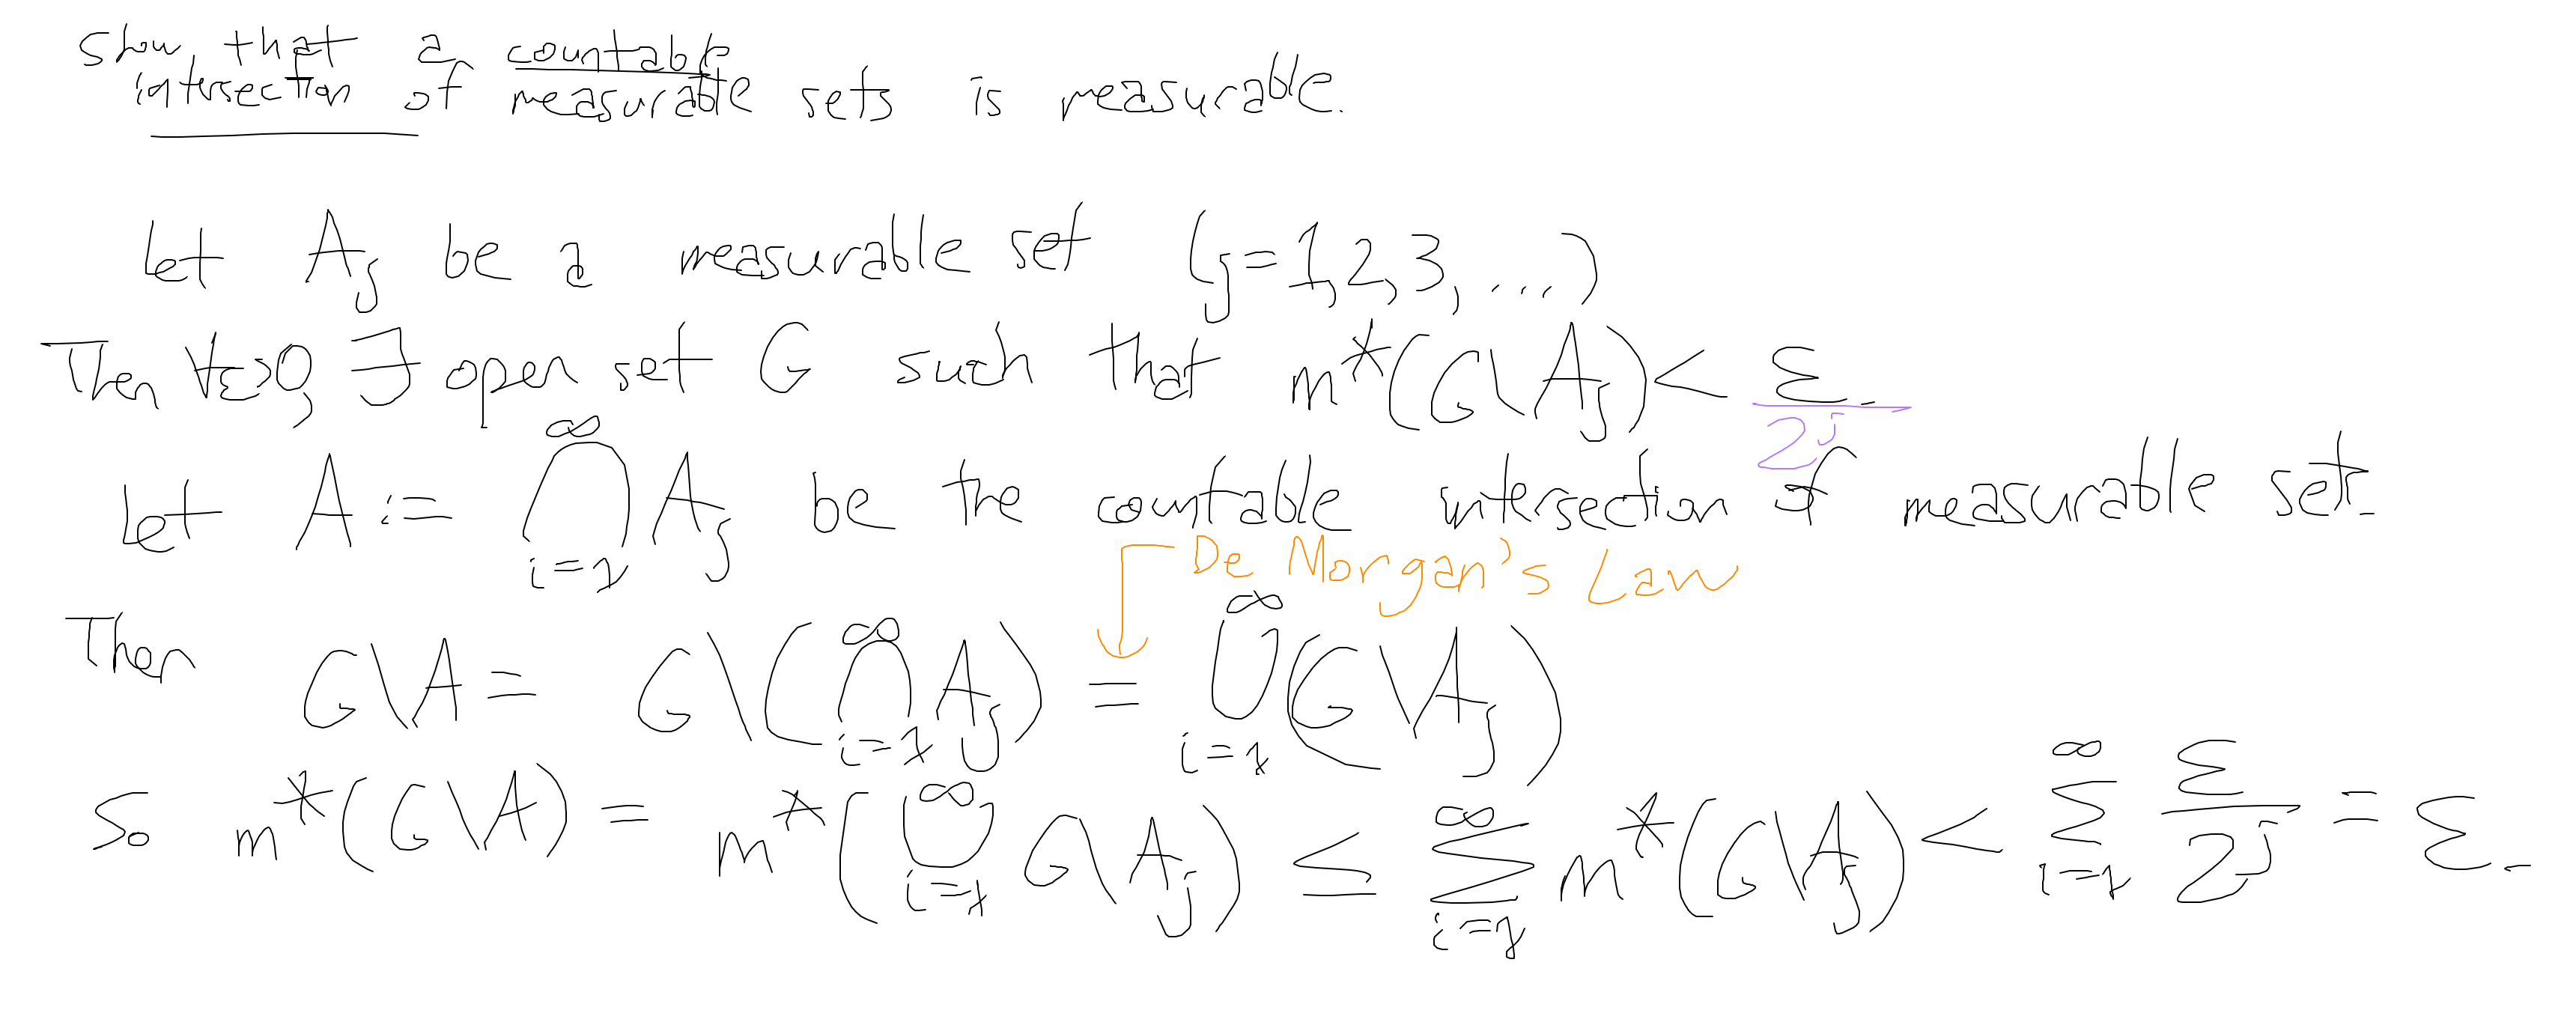 show that a countable
intersection of measurable sets is measurable.
Let A_j be a measurable set (j=1,2,3,...)
Then ∀ε>0, ∃ open set G such that m*(G\A_j) < ε/2^j.
Let A := ⋂_{i=1}^∞ A_j be the countable intersection of measurable set.
De Morgan's Law
Then G\A = G\(⋂_{i=1}^∞ A_j) = ⋃_{i=1}^∞ (G\A_j)
So m*(G\A) = m*(⋃_{i=1}^∞ G\A_j) ≤ ∑_{i=1}^∞ m*(G\A_j) < ∑_{i=1}^∞ ε/2^j = ε.